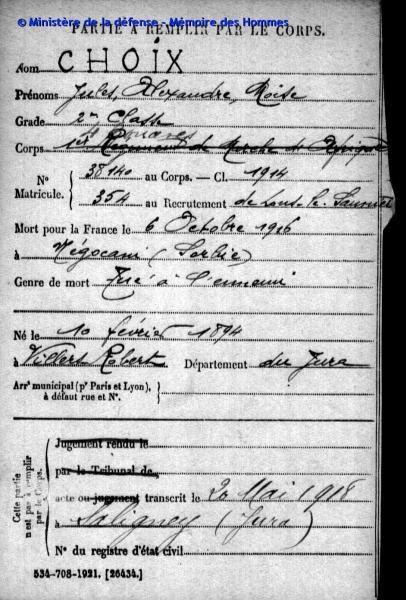 © Ministère de la défense - Mémoire des Hommes
PARTIE À REMPLIR PAR LE CORPS.
Nom CHOIX
Prénoms Jules, Alexandre, Moïse
Grade 2me Classe
Corps 1er Régiment de Marche d'Afrique
N° Matricule. 38140 au Corps. — Cl. 1914
354 au Recrutement de Lons-le-Saunier
Mort pour la France le 6 Octobre 1916
à Négocani (Serbie)
Genre de mort Tué à l'ennemi
Né le 10 février 1894
à Villers Robert Département du Jura
Arrt municipal (pr Paris et Lyon),
à défaut rue et N°.
Cette partie
n'est pas à remplir
par le Corps.
Jugement rendu le
par le Tribunal de
acte ou jugement transcrit le 20 Mai 1918
à Saligney (Jura)
N° du registre d'état civil
534-708-1921. [26434.]